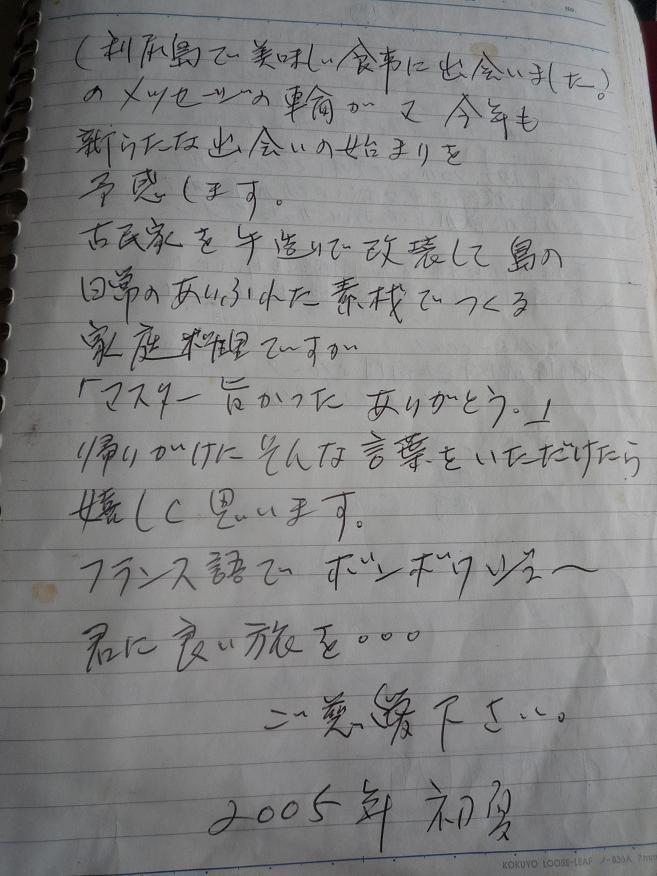 No.
(利尻島で美味しい食事に出会いました)
のメッセージの輪が又今年も
新らたな出会いの始まりを
予感します。
古民家を手造りで改壊して島の
日常のありふれた素材でつくる
家庭料理ですが
「マスター旨かったありがとう。」
帰りがけにそんな言葉をいただけたら
嬉しく思います。
フランス語でボンボワージュ〜
君に良い旅を。。。
ご愛下さい。
2005年 初夏
KOKUYO LOOSE-LEAF ノ-836A 7mm